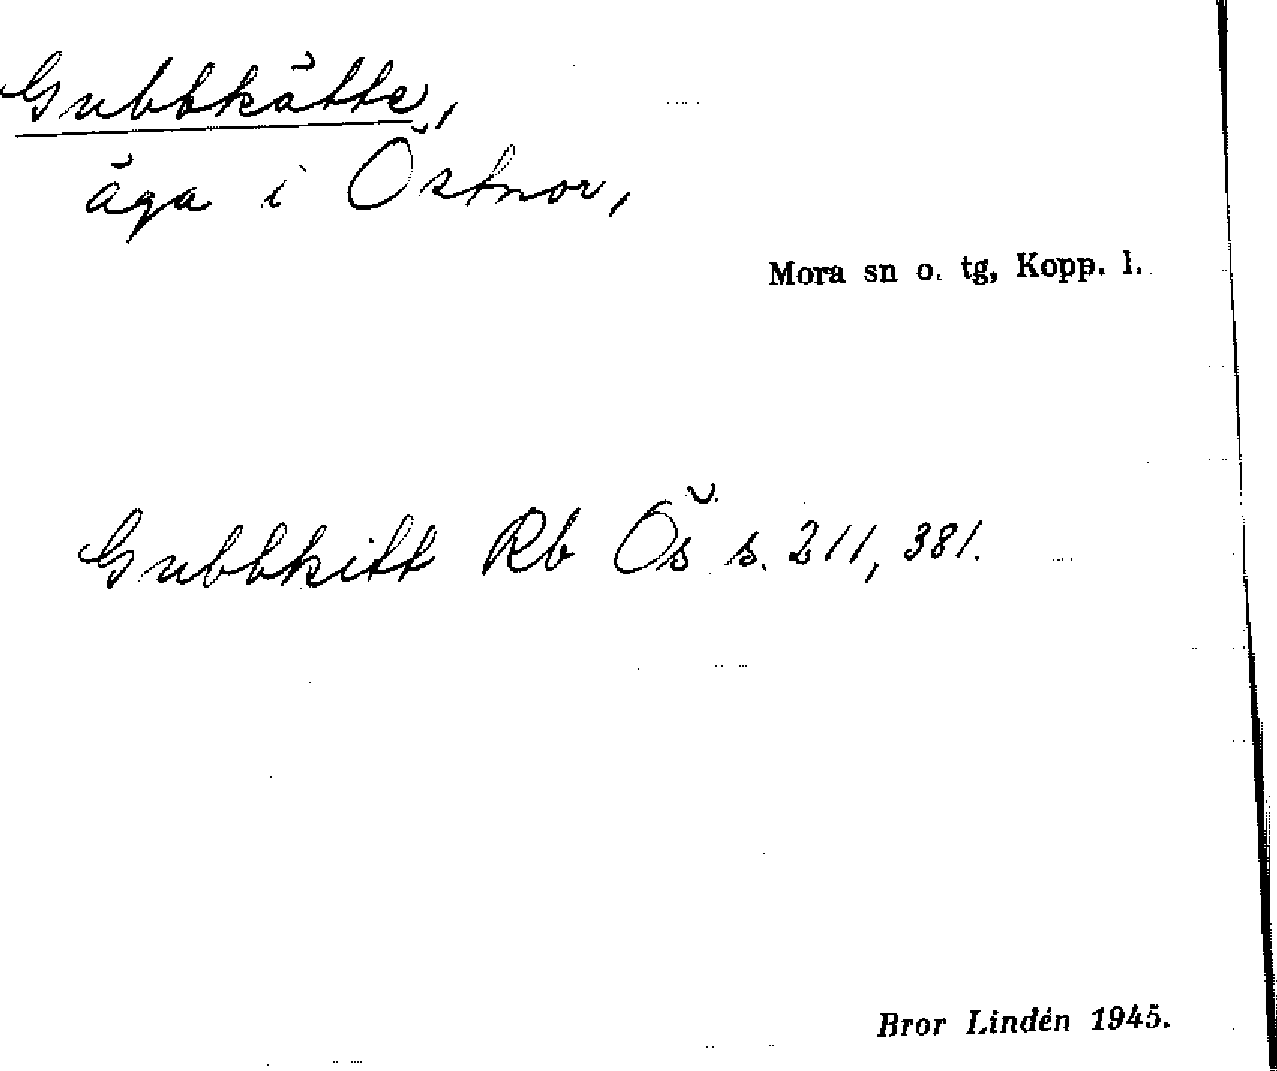 Gubbkätte,
äga i Östnor,
Mora sn o. tg, Kopp. l.
Gubbkitt Rb Ös s. 211, 381.
Bror Lindén 1945.